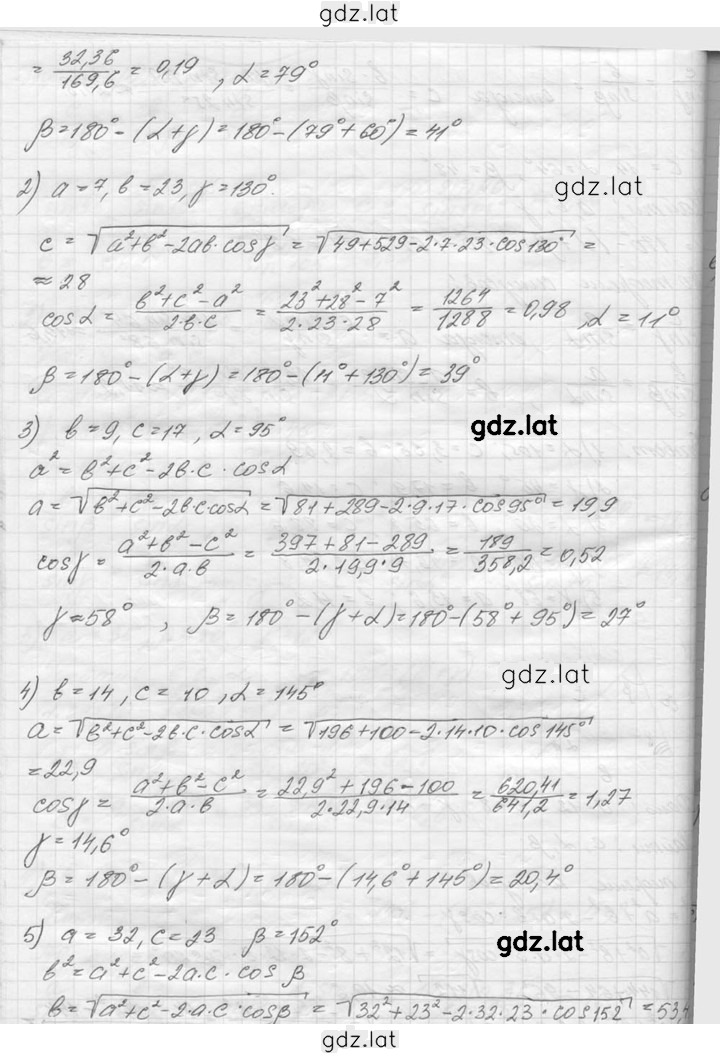 gdz.lat
= 32,36/169,6 = 0,19 , α = 79°
β = 180° - (α + γ) = 180° - (79° + 60°) = 41°
2) a = 7, в = 23, γ = 130°.
gdz.lat
c = √(a² + в² - 2aв·cosγ) = √(49 + 529 - 2·7·23·cos130°) =
≈ 28
cosα = (в² + c² - a²)/(2·в·c) = (23² + 28² - 7²)/(2·23·28) = 1264/1288 = 0,98 , α = 11°
β = 180° - (α + γ) = 180° - (11° + 130°) = 39°
3) в = 9, c = 17, α = 95°
gdz.lat
a² = в² + c² - 2в·c·cosα
a = √(в² + c² - 2в·c·cosα) = √(81 + 289 - 2·9·17·cos95°) = 19,9
cosγ = (a² + в² - c²)/(2·a·в) = (397 + 81 - 289)/(2·19,9·9) = 189/358,2 = 0,52
γ ≈ 58° , β = 180° - (γ + α) = 180° - (58° + 95°) = 27°
gdz.lat
4) в = 14, c = 10, α = 145°
a = √(в² + c² - 2в·c·cosα) = √(196 + 100 - 2·14·10·cos145°)
= 22,9
cosγ = (a² + в² - c²)/(2·a·в) = (22,9² + 196 - 100)/(2·22,9·14) = 620,41/641,2 = 1,27
γ = 14,6°
β = 180° - (γ + α) = 180° - (14,6° + 145°) = 20,4°
5) a = 32, c = 23 β = 152°
gdz.lat
в² = a² + c² - 2a·c·cosβ
в = √(a² + c² - 2·a·c·cosβ) = √(32² + 23² - 2·32·23·cos152°) = 53,4
gdz.lat